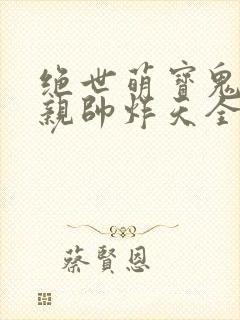 绝世萌寶鬼
親帥炸天全
蔡賢恩